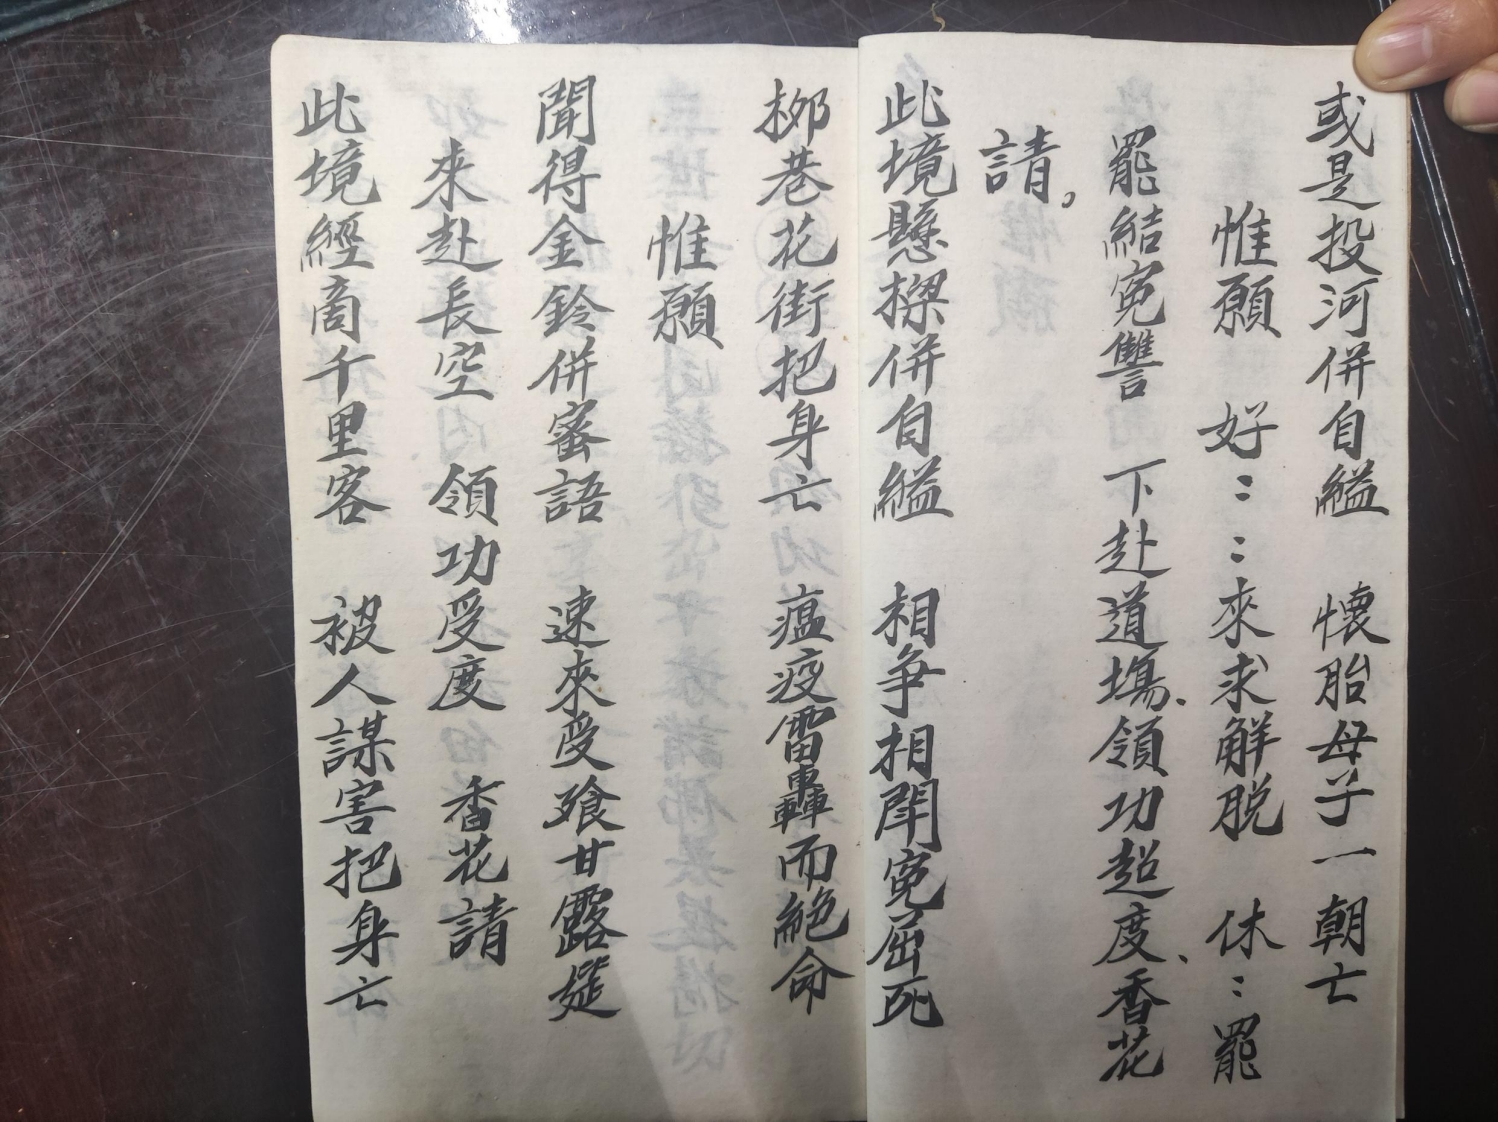 或是投河併自縊　懷胎母子一朝亡
惟願　好：：來求解脱　休：罷
罷結冤讐　下赴道場、領功超度、香花
請。
此境懸樑併自縊　相爭相鬧冤屈死
柳巷花街把身亡　瘟疫雷轟而絕命
惟願
聞得金鈴併蜜語　速來受飡甘露筵
來赴長空　領功受度　香花請
此境經商千里客　被人謀害把身亡